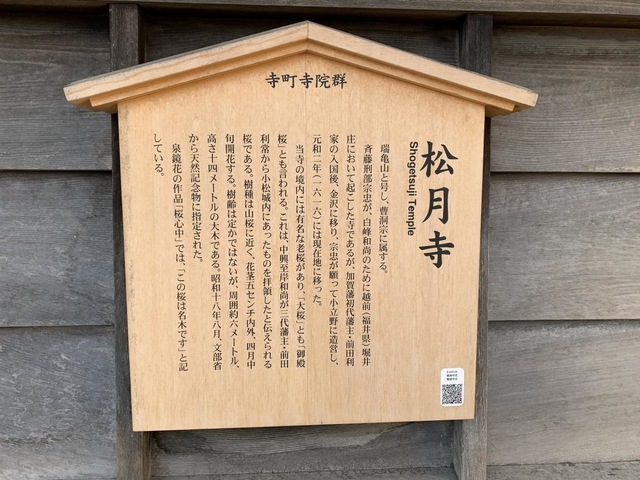 寺町寺院群
松月寺
Shogetsuji Temple
瑞亀山と号し、曹洞宗に属する。
斉藤刑部宗忠が、白峰和尚のために越前（福井県）堀井
庄において起こした寺であるが、加賀藩初代藩主・前田利
家の入国後、金沢に移り、宗忠が願って小立野に造営し、
元和二年（一六一六）には現在地に移った。
当寺の境内には有名な老桜があり、「大桜」とも「御殿
桜」とも言われる。これは、中興至岸和尚が三代藩主・前田
利常から小松城内にあったものを拝領したと伝えられる
桜である。樹種は山桜に近く、花茎五センチ内外、四月中
旬開花する。樹齢は定かではないが、周囲約六メートル、
高さ十四メートルの大木である。昭和十八年八月、文部省
から天然記念物に指定された。
泉鏡花の作品「桜心中」では、「この桜は名木です」と記
している。